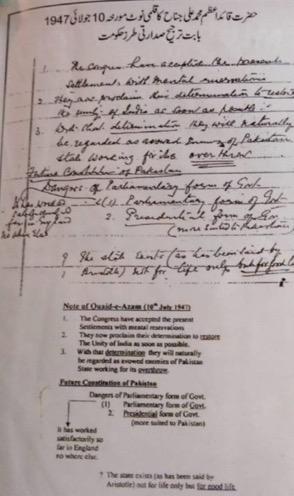 حضرت قائداعظم محمد علی جناح کا قلمی نوٹ مورخہ 10 جولائی 1947
بابت ترجیح صدارتی طرز حکومت
1. The Congress have accepted the present
Settlement with mental reservations
2. They now proclaim their determination to restore
the unity of India as soon as possible.
3. With that determination they will naturally
be regarded as avowed enemies of Pakistan
State working for its overthrow.
Future Constitution of Pakistan
Dangers of Parliamentary form of Govt.
(1) Parliamentary form of Govt
2. Presidential form of Gov
(more suited to Pakistan)
? The state exists (as has been said by
Aristotle) not for life only but for good life
Note of Quaid-e-Azam (10th July 1947)
1. The Congress have accepted the present
Settlements with mental reservations
2. They now proclaim their determination to restore
The Unity of India as soon as possible.
3. With that determination they will naturally
be regarded as avowed enemies of Pakistan
State working for its overthrow.
Future Constitution of Pakistan
Dangers of Parliamentary form of Govt.
(1) Parliamentary form of Govt.
2. Presidential form of Govt.
(more suited to Pakistan)
It has worked
satisfactorily so
far in England
no where else.
? The state exists (as has been said by
Aristotle) not for life only but for good life.